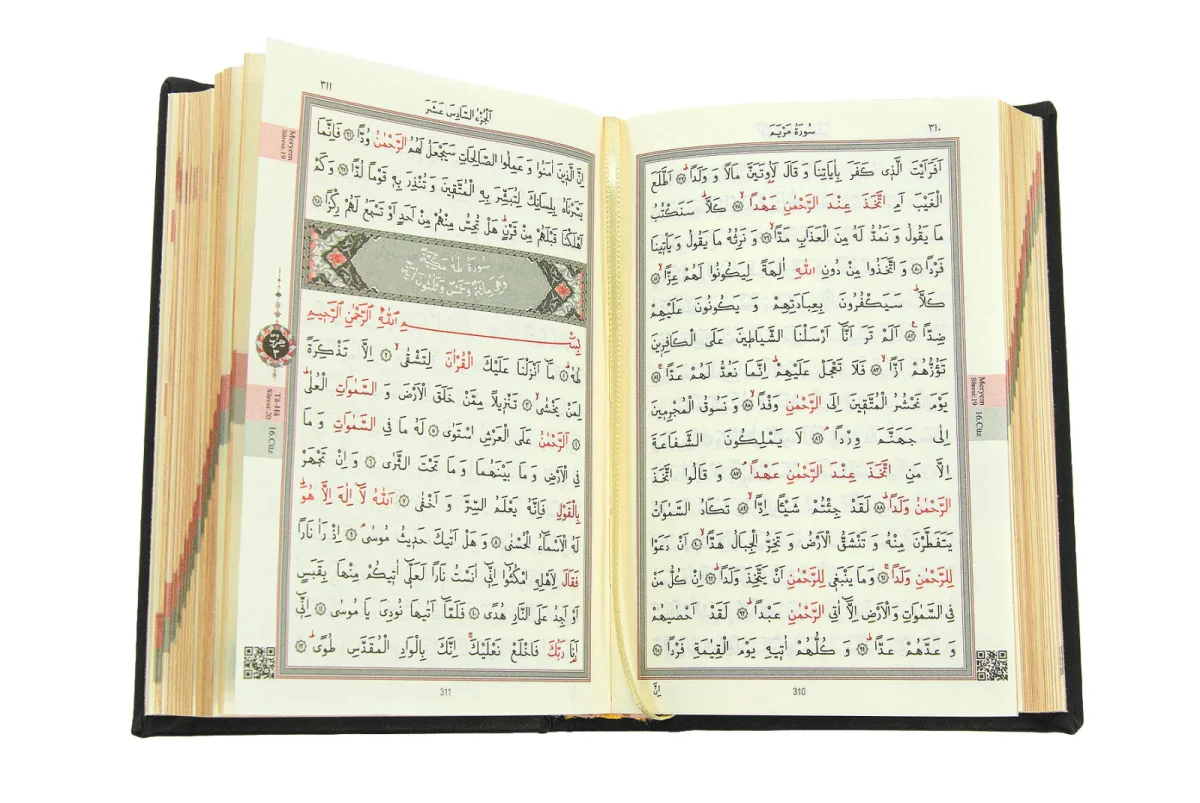 ٣١٠
سُورَةُ مَرْيَمَ
اَفَرَاَيْتَ الَّذ۪ي كَفَرَ بِاٰيَاتِنَا وَ قَالَ لَاُوتَيَنَّ مَالًا وَ وَلَدًاۜ ﴿٧٧﴾ اَطَّلَعَ
الْغَيْبَ اَمِ اتَّخَذَ عِنْدَ الرَّحْمٰنِ عَهْدًاۙ ﴿٧٨﴾ كَلَّاۜ سَنَكْتُبُ
مَا يَقُولُ وَ نَمُدُّ لَهُ مِنَ الْعَذَابِ مَدًّاۙ ﴿٧٩﴾ وَ نَرِثُهُ مَا يَقُولُ وَ يَأْت۪ينَا
فَرْدًا ﴿٨٠﴾ وَ اتَّخَذُوا مِنْ دُونِ اللّٰهِ اٰلِهَةً لِيَكُونُوا لَهُمْ عِزًّاۙ ﴿٨١﴾
كَلَّاۜ سَيَكْفُرُونَ بِعِبَادَتِهِمْ وَ يَكُونُونَ عَلَيْهِمْ
ضِدًّا۟ ﴿٨٢﴾ اَلَمْ تَرَ اَنَّٓا اَرْسَلْنَا الشَّيَاط۪ينَ عَلَى الْكَافِر۪ينَ
تَؤُزُّهُمْ اَزًّاۙ ﴿٨٣﴾ فَلَا تَعْجَلْ عَلَيْهِمْۜ اِنَّمَا نَعُدُّ لَهُمْ عَدًّاۚ ﴿٨٤﴾
يَوْمَ نَحْشُرُ الْمُتَّق۪ينَ اِلَى الرَّحْمٰنِ وَفْدًاۙ ﴿٨٥﴾ وَ نَسُوقُ الْمُجْرِم۪ينَ
اِلٰى جَهَنَّمَ وِرْدًاۢ ﴿٨٦﴾ لَا يَمْلِكُونَ الشَّفَاعَةَ
اِلَّا مَنِ اتَّخَذَ عِنْدَ الرَّحْمٰنِ عَهْدًاۢ ﴿٨٧﴾ وَ قَالُوا اتَّخَذَ
الرَّحْمٰنُ وَلَدًاۜ ﴿٨٨﴾ لَقَدْ جِئْتُمْ شَيْـًٔا اِدًّاۙ ﴿٨٩﴾ تَكَادُ السَّمٰوَاتُ
يَتَفَطَّرْنَ مِنْهُ وَ تَنْشَقُّ الْاَرْضُ وَ تَخِرُّ الْجِبَالُ هَدًّاۙ ﴿٩٠﴾ اَنْ دَعَوْا
لِلرَّحْمٰنِ وَلَدًاۚ ﴿٩١﴾ وَ مَا يَنْبَغ۪ي لِلرَّحْمٰنِ اَنْ يَتَّخِذَ وَلَدًاۜ ﴿٩٢﴾ اِنْ كُلُّ مَنْ
فِي السَّمٰوَاتِ وَ الْاَرْضِ اِلَّٓا اٰتِي الرَّحْمٰنِ عَبْدًاۜ ﴿٩٣﴾ لَقَدْ اَحْصٰيهُمْ
وَ عَدَّهُمْ عَدًّاۜ ﴿٩٤﴾ وَ كُلُّهُمْ اٰت۪يهِ يَوْمَ الْقِيٰمَةِ فَرْدًا ﴿٩٥﴾
اِنَّ
310
Meryem
Sûresi:19
16.Cüz
٣١١
اَلْجُزْءُ السَّادِسَ عَشَرَ
اِنَّ الَّذ۪ينَ اٰمَنُوا وَ عَمِلُوا الصَّالِحَاتِ سَيَجْعَلُ لَهُمُ الرَّحْمٰنُ وُدًّا ﴿٩٦﴾ فَاِنَّمَا
يَسَّرْنَاهُ بِلِسَانِكَ لِتُبَشِّرَ بِهِ الْمُتَّق۪ينَ وَ تُنْذِرَ بِه۪ قَوْمًا لُدًّا ﴿٩٧﴾ وَ كَمْ
اَهْلَكْنَا قَبْلَهُمْ مِنْ قَرْنٍۜ هَلْ تُحِسُّ مِنْهُمْ مِنْ اَحَدٍ اَوْ تَسْمَعُ لَهُمْ رِكْزًا ﴿٩٨﴾
سُورَةُ طٰهٰ مَكِّيَّةٌ
وَهِيَ مِائَةٌ وَخَمْسٌ وَثَلٰثُونَ اٰيَةً
بِسْمِ اللّٰهِ الرَّحْمٰنِ الرَّح۪يمِ
طٰهٰ ﴿١﴾ مَٓا اَنْزَلْنَا عَلَيْكَ الْقُرْاٰنَ لِتَشْقٰىۙ ﴿٢﴾ اِلَّا تَذْكِرَةً
لِمَنْ يَخْشٰىۙ ﴿٣﴾ تَنْز۪يلًا مِمَّنْ خَلَقَ الْاَرْضَ وَ السَّمٰوَاتِ الْعُلٰىۜ
﴿٤﴾ اَلرَّحْمٰنُ عَلَى الْعَرْشِ اسْتَوٰى ﴿٥﴾ لَهُ مَا فِي السَّمٰوَاتِ وَ مَا
فِي الْاَرْضِ وَ مَا بَيْنَهُمَا وَ مَا تَحْتَ الثَّرٰى ﴿٦﴾ وَ اِنْ تَجْهَرْ
بِالْقَوْلِ فَاِنَّهُ يَعْلَمُ السِّرَّ وَ اَخْفٰى ﴿٧﴾ اَللّٰهُ لَٓا اِلٰهَ اِلَّا هُوَۜ
لَهُ الْاَسْمَٓاءُ الْحُسْنٰى ﴿٨﴾ وَ هَلْ اَتٰيكَ حَد۪يثُ مُوسٰىۢ ﴿٩﴾ اِذْ رَاٰ نَارًا
فَقَالَ لِاَهْلِهِ امْكُثُٓوا اِنّ۪ٓي اٰنَسْتُ نَارًا لَعَلّ۪ٓي اٰت۪يكُمْ مِنْهَا بِقَبَسٍ
اَوْ اَجِدُ عَلَى النَّارِ هُدًى ﴿١٠﴾ فَلَمَّٓا اَتٰيهَا نُودِيَ يَا مُوسٰى ﴿١١﴾ اِنّ۪ٓي
اَنَا۬ رَبُّكَ فَاخْلَعْ نَعْلَيْكَۚ اِنَّكَ بِالْوَادِ الْمُقَدَّسِ طُوًىۜ ﴿١٢﴾
311
Meryem
Sûresi:19
Tâ-Hâ
Sûresi:20
16.Cüz